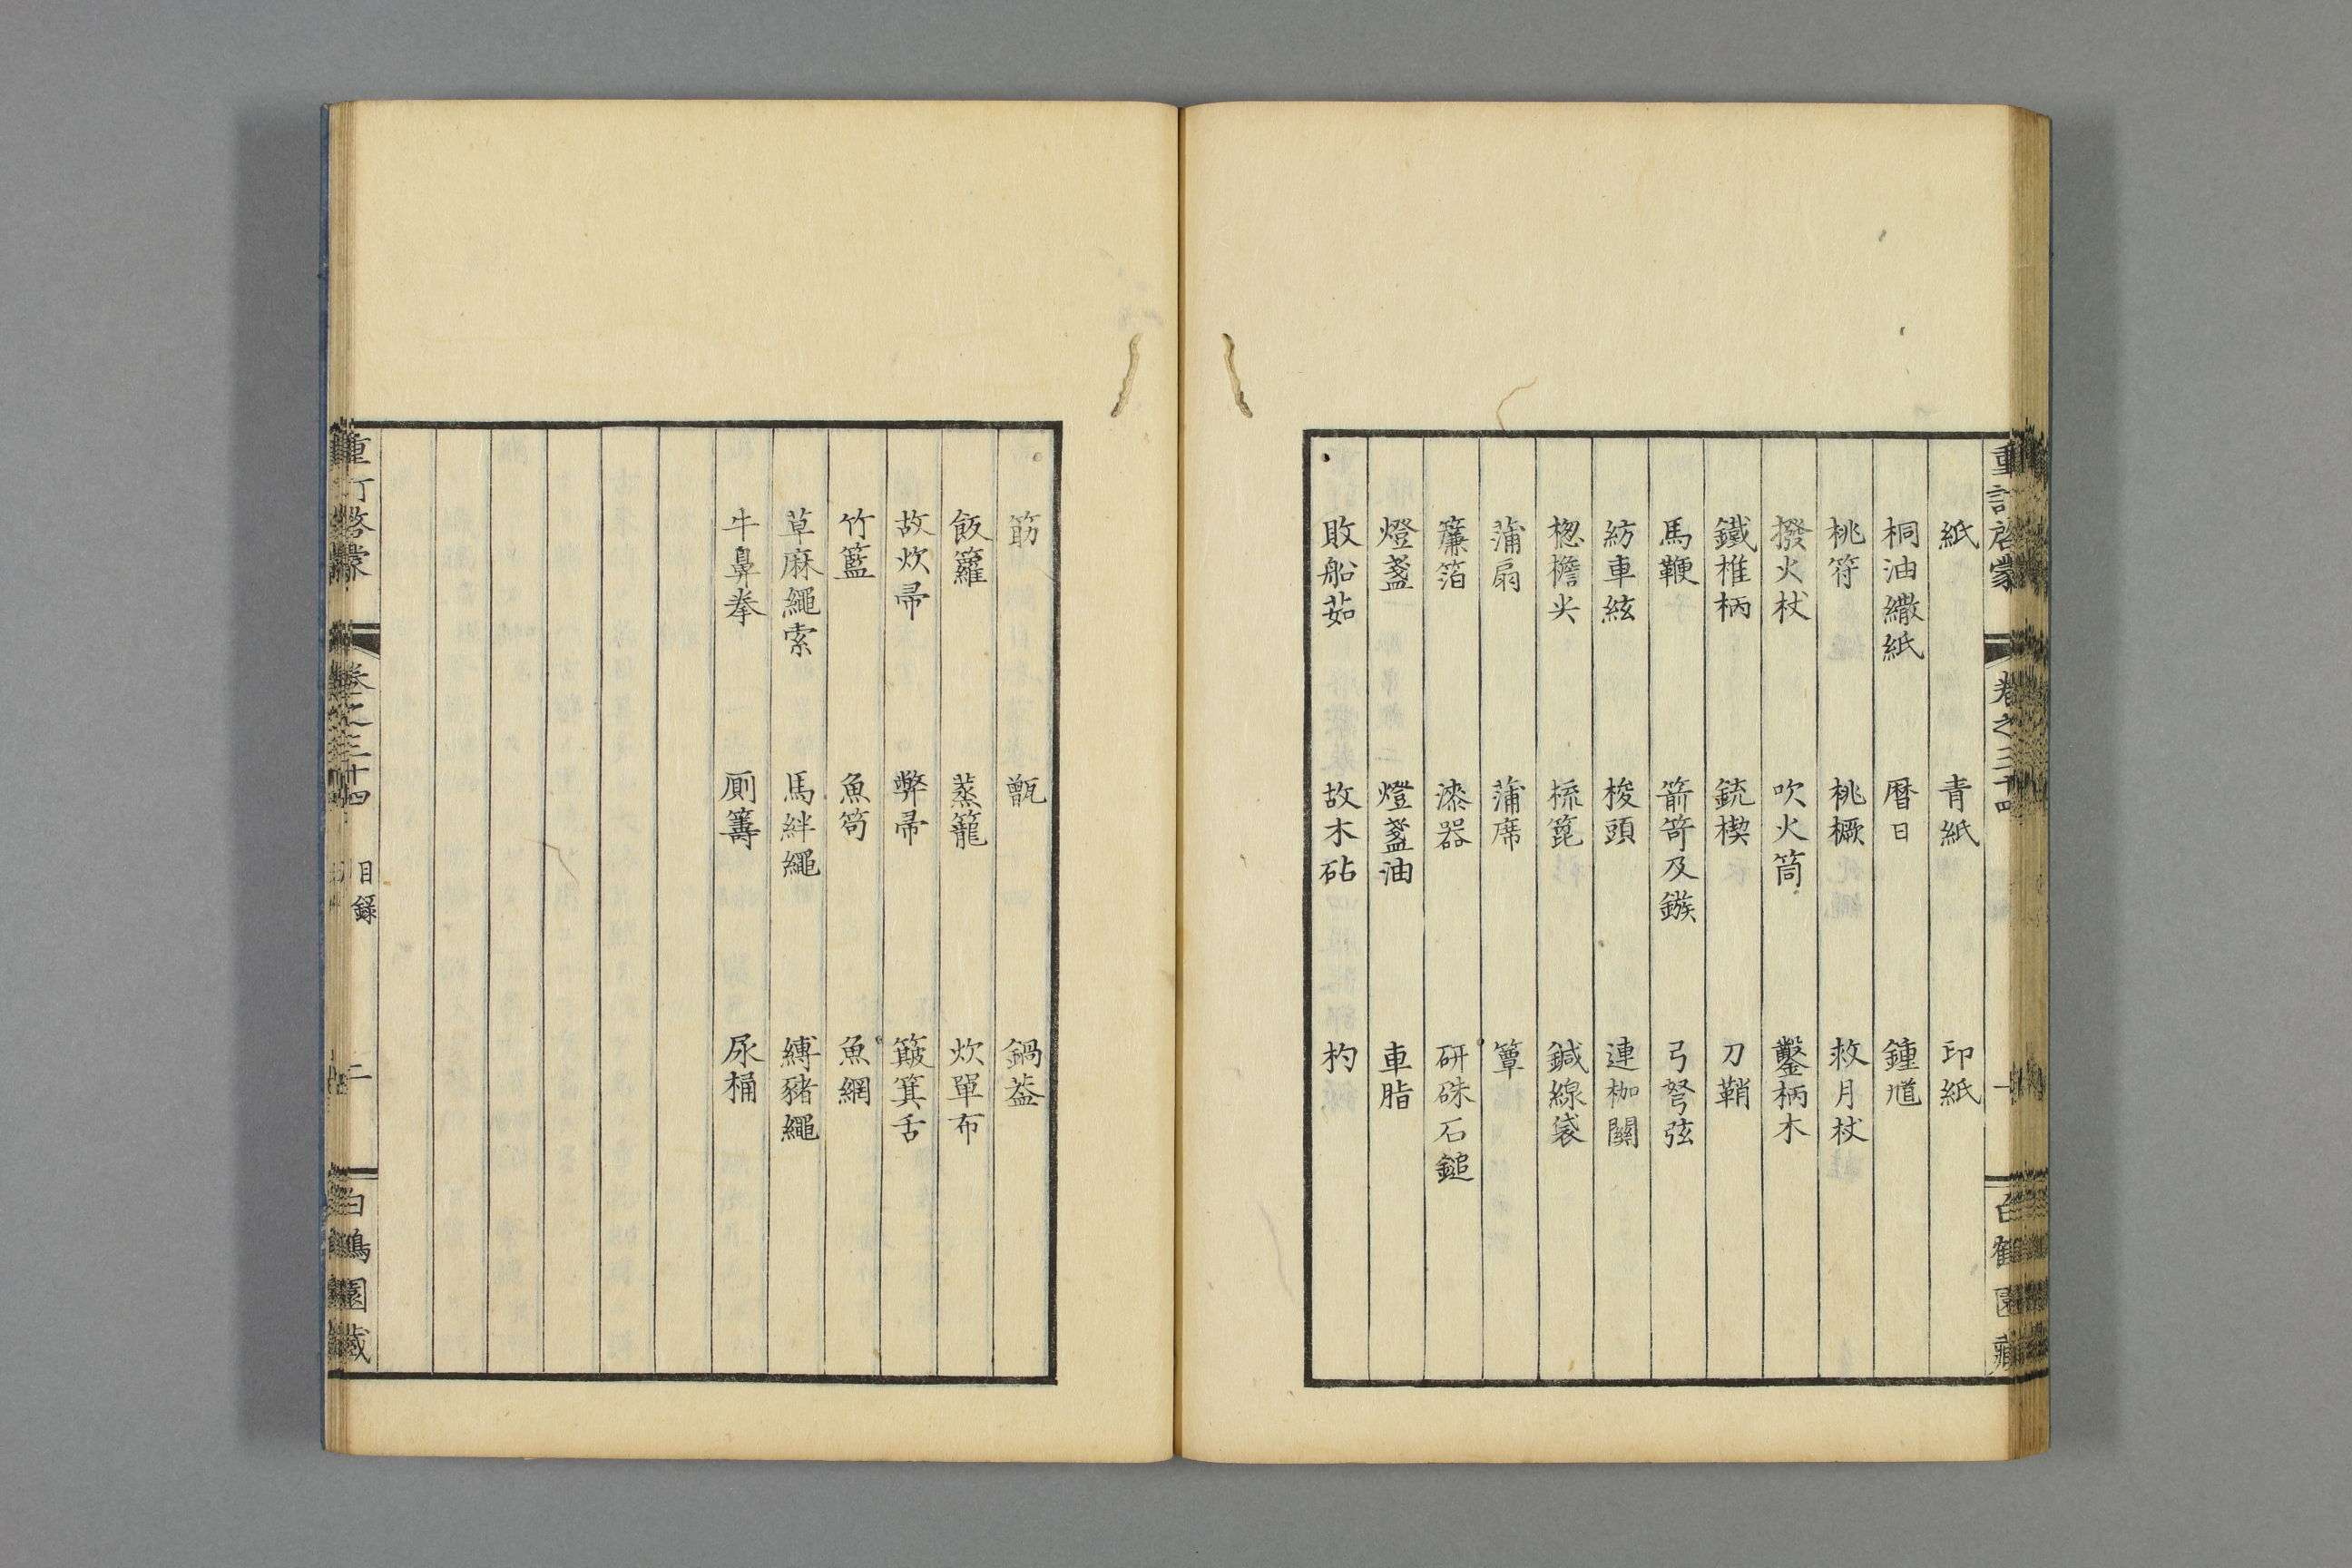 重訂啓蒙 卷之三十四 一
紙 青紙 印紙
桐油繖紙 曆日 鍾馗
桃符 桃橛 救月杖
撥火杖 吹火筒 鑿柄木
鐵椎柄 銃楔 刀鞘
馬鞭 箭笴及鏃 弓弩弦
紡車絃 梭頭 連枷關
楤檐尖 梳篦 鍼線袋
蒲扇 蒲席 簟
簾箔 漆器 研硃石鎚
燈盞 燈盞油 車脂
敗船茹 故木砧 杓
筯 甑 鍋蓋
飯籮 蒸籠 炊單布
故炊帚 弊帚 簸箕舌
竹籃 魚笱 魚網
草麻繩索 馬絆繩 縛豬繩
牛鼻拳 厠籌 尿桶
重訂啓蒙 卷之三十四 目錄 二